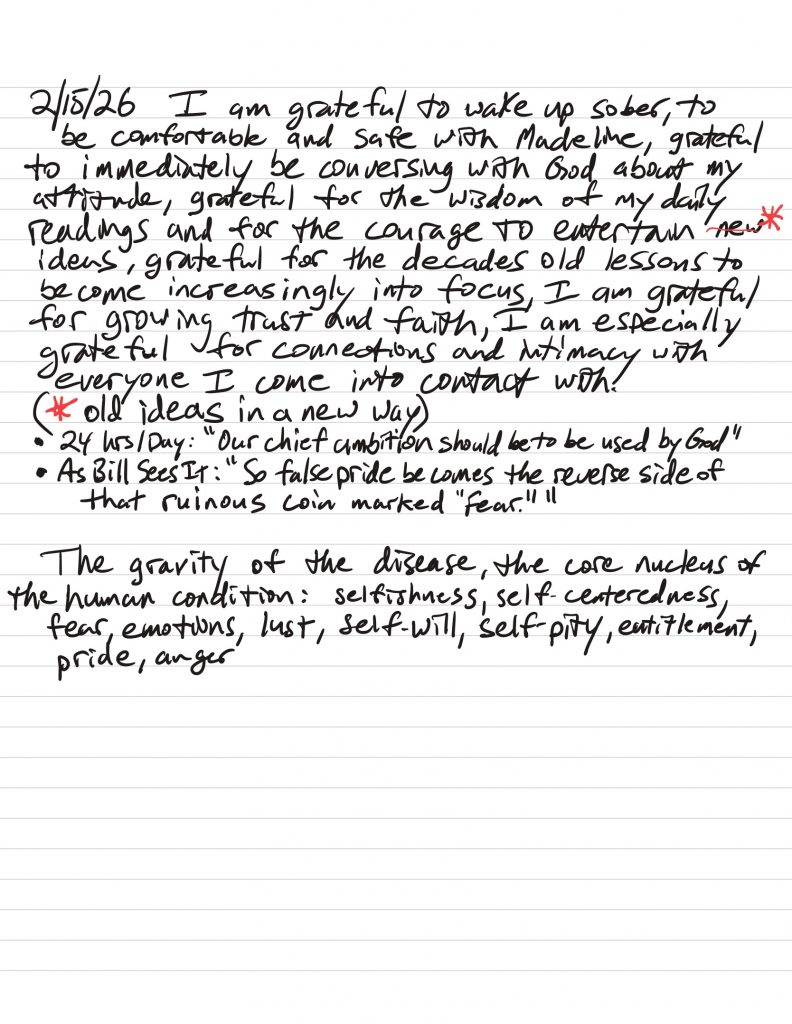 2/15/26 I am grateful to wake up sober, to
be comfortable and safe with Madeline, grateful
to immediately be conversing with God about my
attitude, grateful for the wisdom of my daily
readings and for the courage to entertain new*
ideas, grateful for the decades old lessons to
become increasingly into focus, I am grateful
for growing trust and faith, I am especially
grateful for connections and intimacy with
everyone I come into contact with.
(* old ideas in a new way)
• 24 hrs/Day: "Our chief ambition should be to be used by God"
• As Bill Sees It: "So false pride becomes the reverse side of
that ruinous coin marked "fear.""
The gravity of the disease, the core nucleus of
the human condition: selfishness, self-centeredness,
fear, emotions, lust, self-will, self-pity, entitlement,
pride, anger